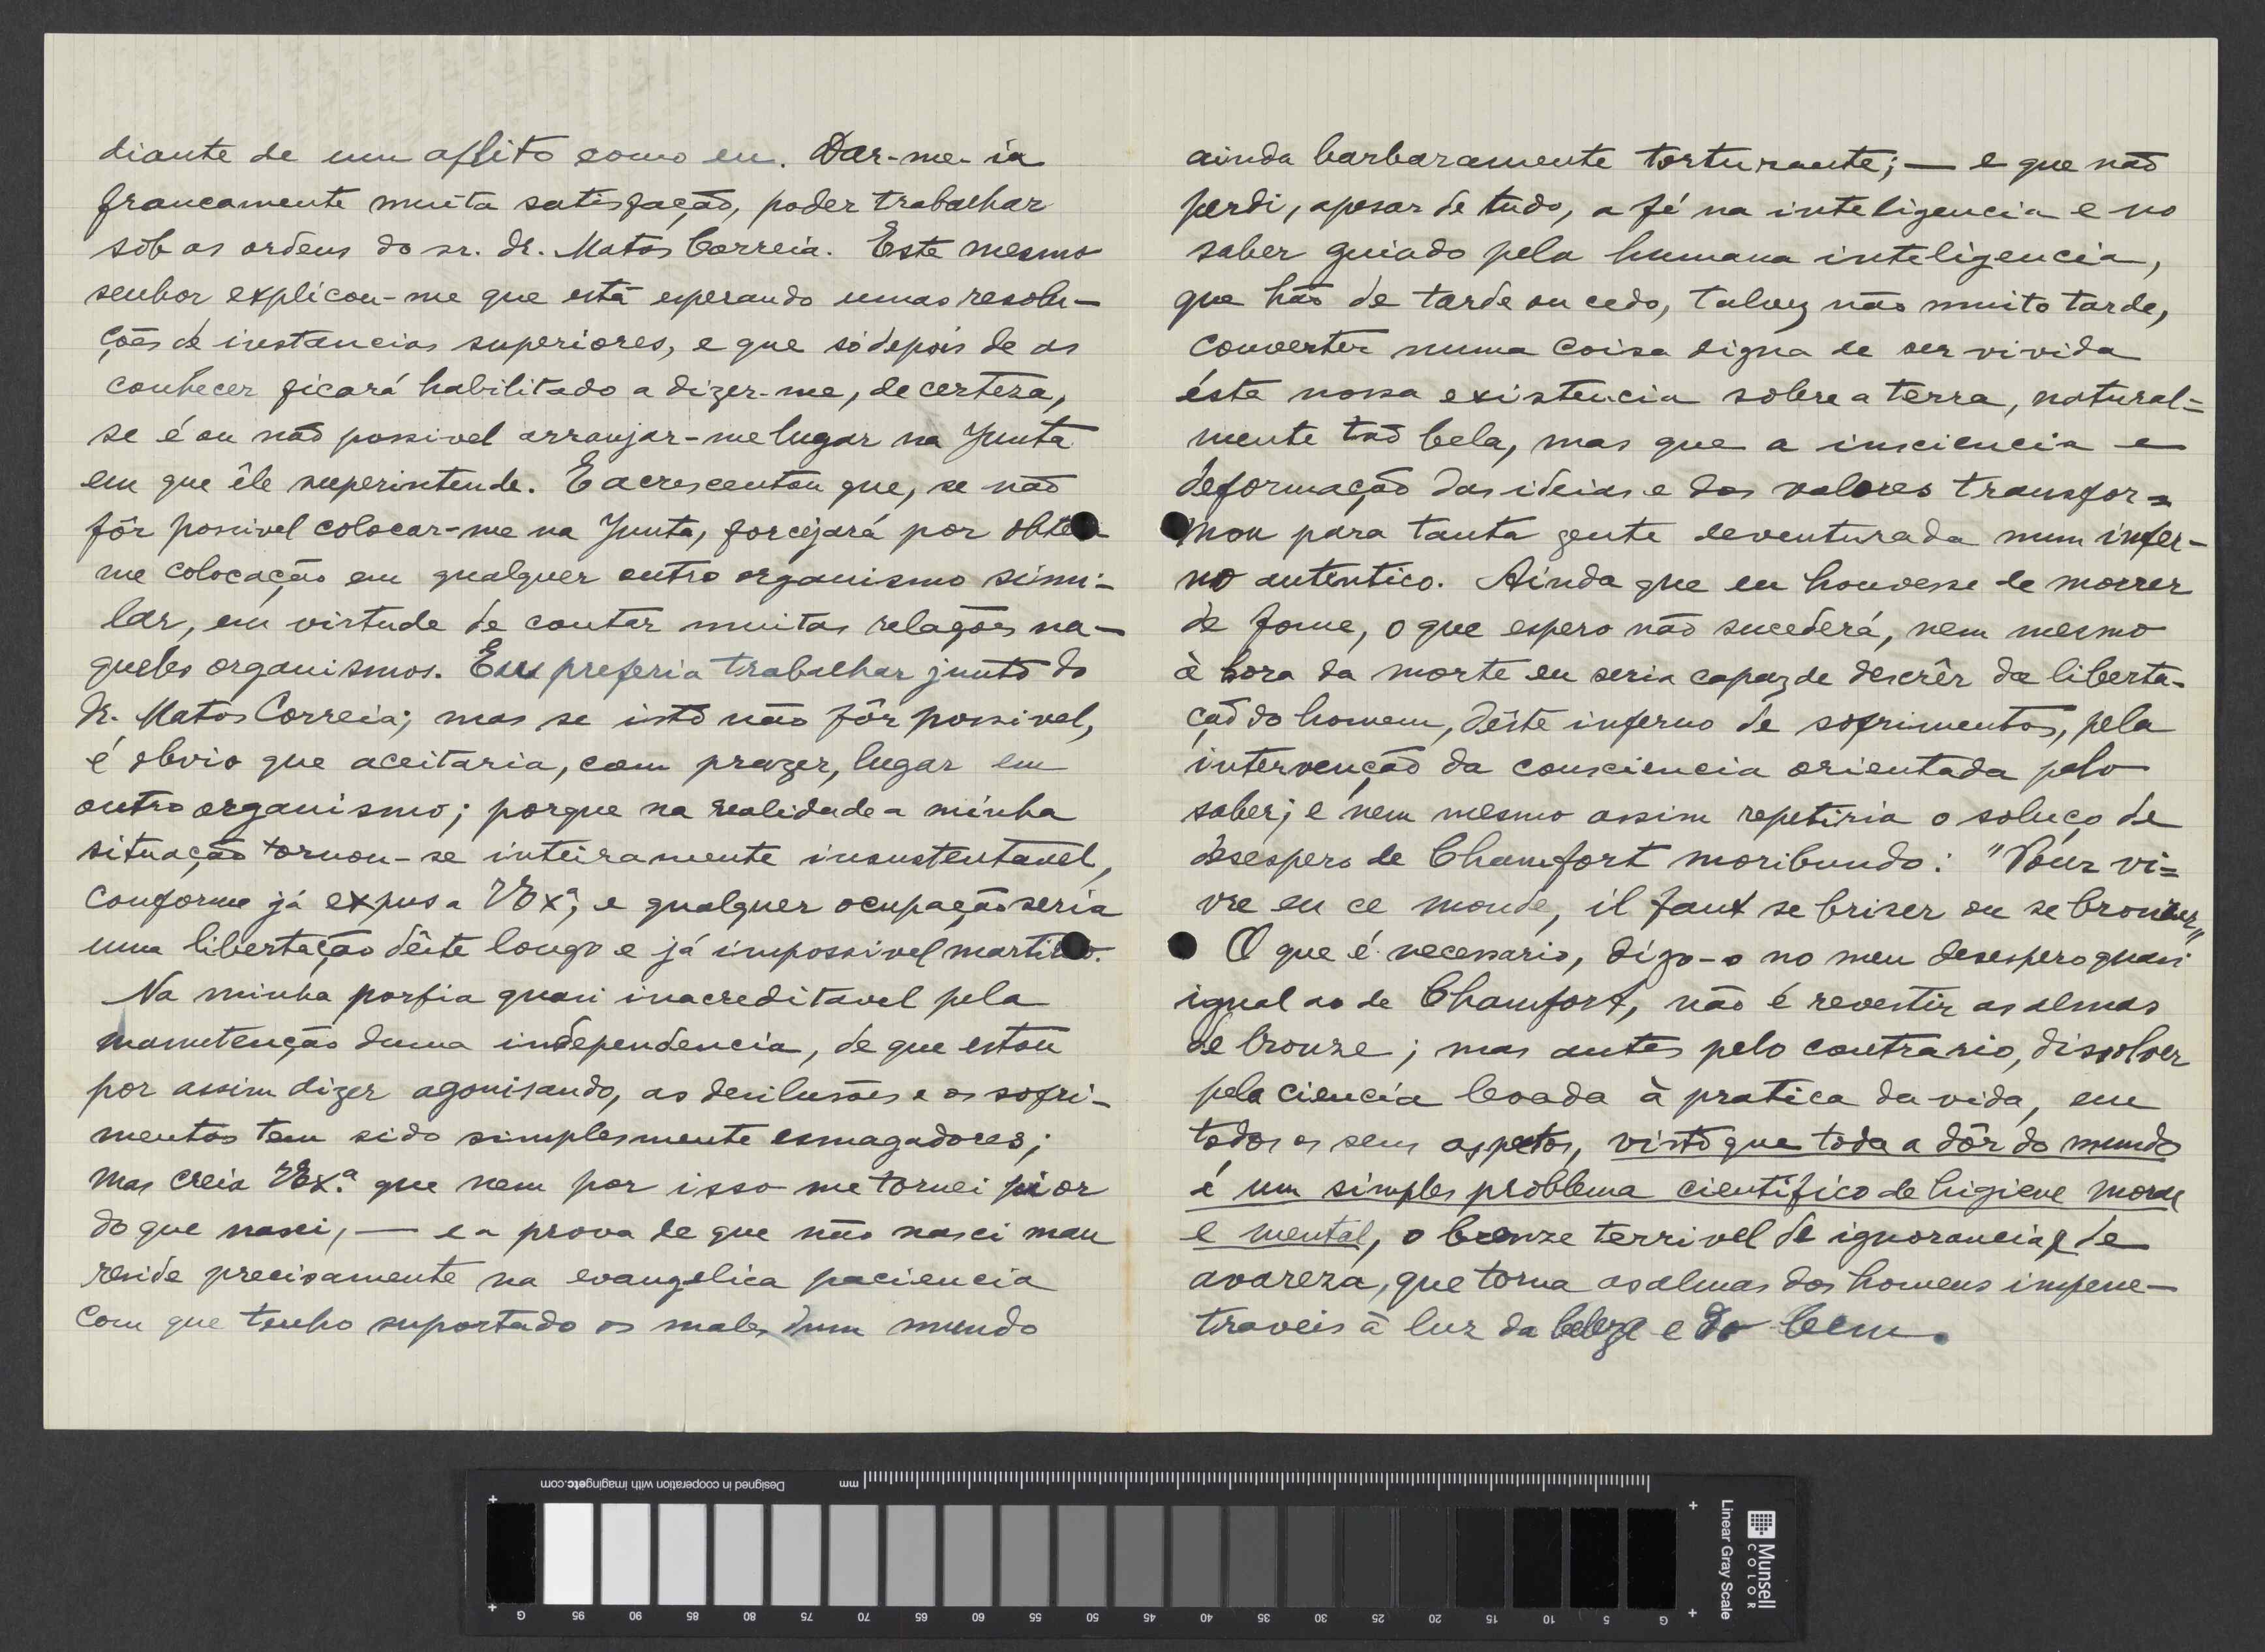 diante de um aflito como eu. Dar-me-ia
francamente muita satisfação, poder trabalhar
sôb as ordens do sr. dr. Matos Correia. Este mesmo
senhor explicou-me que está esperando umas resolu-
ções de instancias superiores, e que só depois de as
conhecer ficará habilitado a dizer-me, de certeza,
se é ou não possivel arranjar-me lugar na Junta
em que êle superintende. E acrescentou que, se não
fôr possivel colocar-me na Junta, forcejará por obter-
me colocação em qualquer outro organismo simi-
lar, em virtude de contar muitas relações na-
queles organismos. Eu preferia trabalhar junto do
dr. Matos Correia; mas se isto não fôr possivel,
é obvio que aceitaria, com prazer, lugar em
outro organismo; porque na realidade a minha
situação tornou-se inteiramente insustentavel,
conforme já expus a VExª, e qualquer ocupação seria
uma libertação dêste longo e já impossivel martirio.
Na minha porfia quasi inacreditavel pela
manutenção duma independencia, de que estou
por assim dizer agonisando, as desilusões e os sofri-
mentos tem sido simplesmente esmagadores;
mas creia VEx.ª que nem por isso me tornei pior
do que nasci, — e a prova de que não nasci mau
reside precisamente na evangelica paciencia
com que tenho suportado os males dum mundo
ainda barbaramente torturante; — e que não
perdi, apesar de tudo, a fé na inteligencia e no
saber guiado pela humana inteligencia,
que hão de tarde ou cedo, talvez não muito tarde,
converter numa coisa digna de ser vivida
ésta nossa existencia sobre a terra, natural=
mente tão bela, mas que a insciencia e
deformação das ideias e dos valores transfor=
mou para tanta gente deventurada num infer-
no autentico. Ainda que eu houvesse de morrer
de fome, o que espero não sucederá, nem mesmo
à hora da morte eu seria capaz de descrêr da liberta-
ção do homem, dêste inferno de sofrimentos, pela
intervenção da consciencia orientada pelo
saber; e nem mesmo assim repetiria o soluço de
desespero de Chamfort moribundo: "Pour vi=
vre en ce monde, il faut se briser ou se bronzer"
O que é necessario, digo-o no meu desespero quasi
igual ao de Chamfort, não é revestir as almas
de bronze; mas antes pelo contrario, dissolver
pela ciencia levada à pratica da vida, em
todos os seus aspetos, visto que toda a dôr do mundo
é um simples problema cientifico de higiene moral
e mental, o bronze terrivel de ignorancia e de
avareza, que torna as almas dos homens impene-
traveis à luz da beleza e do bem.
Designed in cooperation with imagingetc.com
mm
Munsell
COLOR
Linear Gray Scale
G 95 90 85 80 75 70 65 60 55 50 45 40 35 30 25 20 15 10 5 G